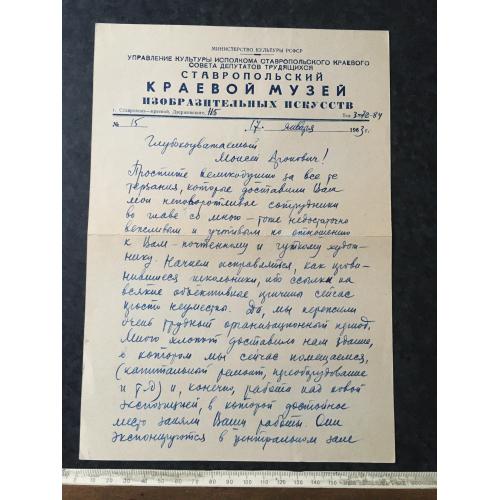 МИНИСТЕРСТВО КУЛЬТУРЫ РСФСР
УПРАВЛЕНИЕ КУЛЬТУРЫ ИСПОЛКОМА СТАВРОПОЛЬСКОГО КРАЕВОГО
СОВЕТА ДЕПУТАТОВ ТРУДЯЩИХСЯ
СТАВРОПОЛЬСКИЙ
КРАЕВОЙ МУЗЕЙ
ИЗОБРАЗИТЕЛЬНЫХ ИСКУССТВ
г. Ставрополь—краевой, Дзержинского, 115 Тел. 3-42-84
№ 15 17 января 1963 г.
Глубокоуважаемый
Моисей Аронович!
Простите великодушно за все те
терзания, которые доставили Вам
мои неповоротливые сотрудники
во главе со мною - тоже недостаточно
вежливым и учтивым по отношению
к Вам - почтенному и чуткому худож-
нику. Начнем исправляться, как прови-
нившиеся школьники, ибо ссылки на
всякие объективные причины сейчас
просто неуместно. Да, мы пережили
очень трудный организационный период.
Много хлопот доставило нам здание,
в котором мы сейчас помещаемся,
(капитальный ремонт, преоборудование
и т.д) и, конечно, работа над новой
экспозицией, в которой достойное
место заняли Ваши работы. Они
экспонируются в центральном зале